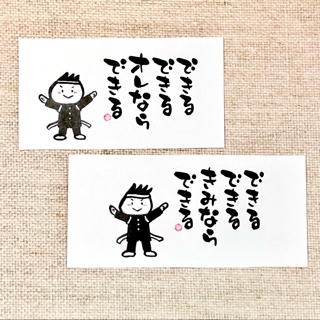 できる
できる
オレなら
できる
できる
できる
きみなら
できる